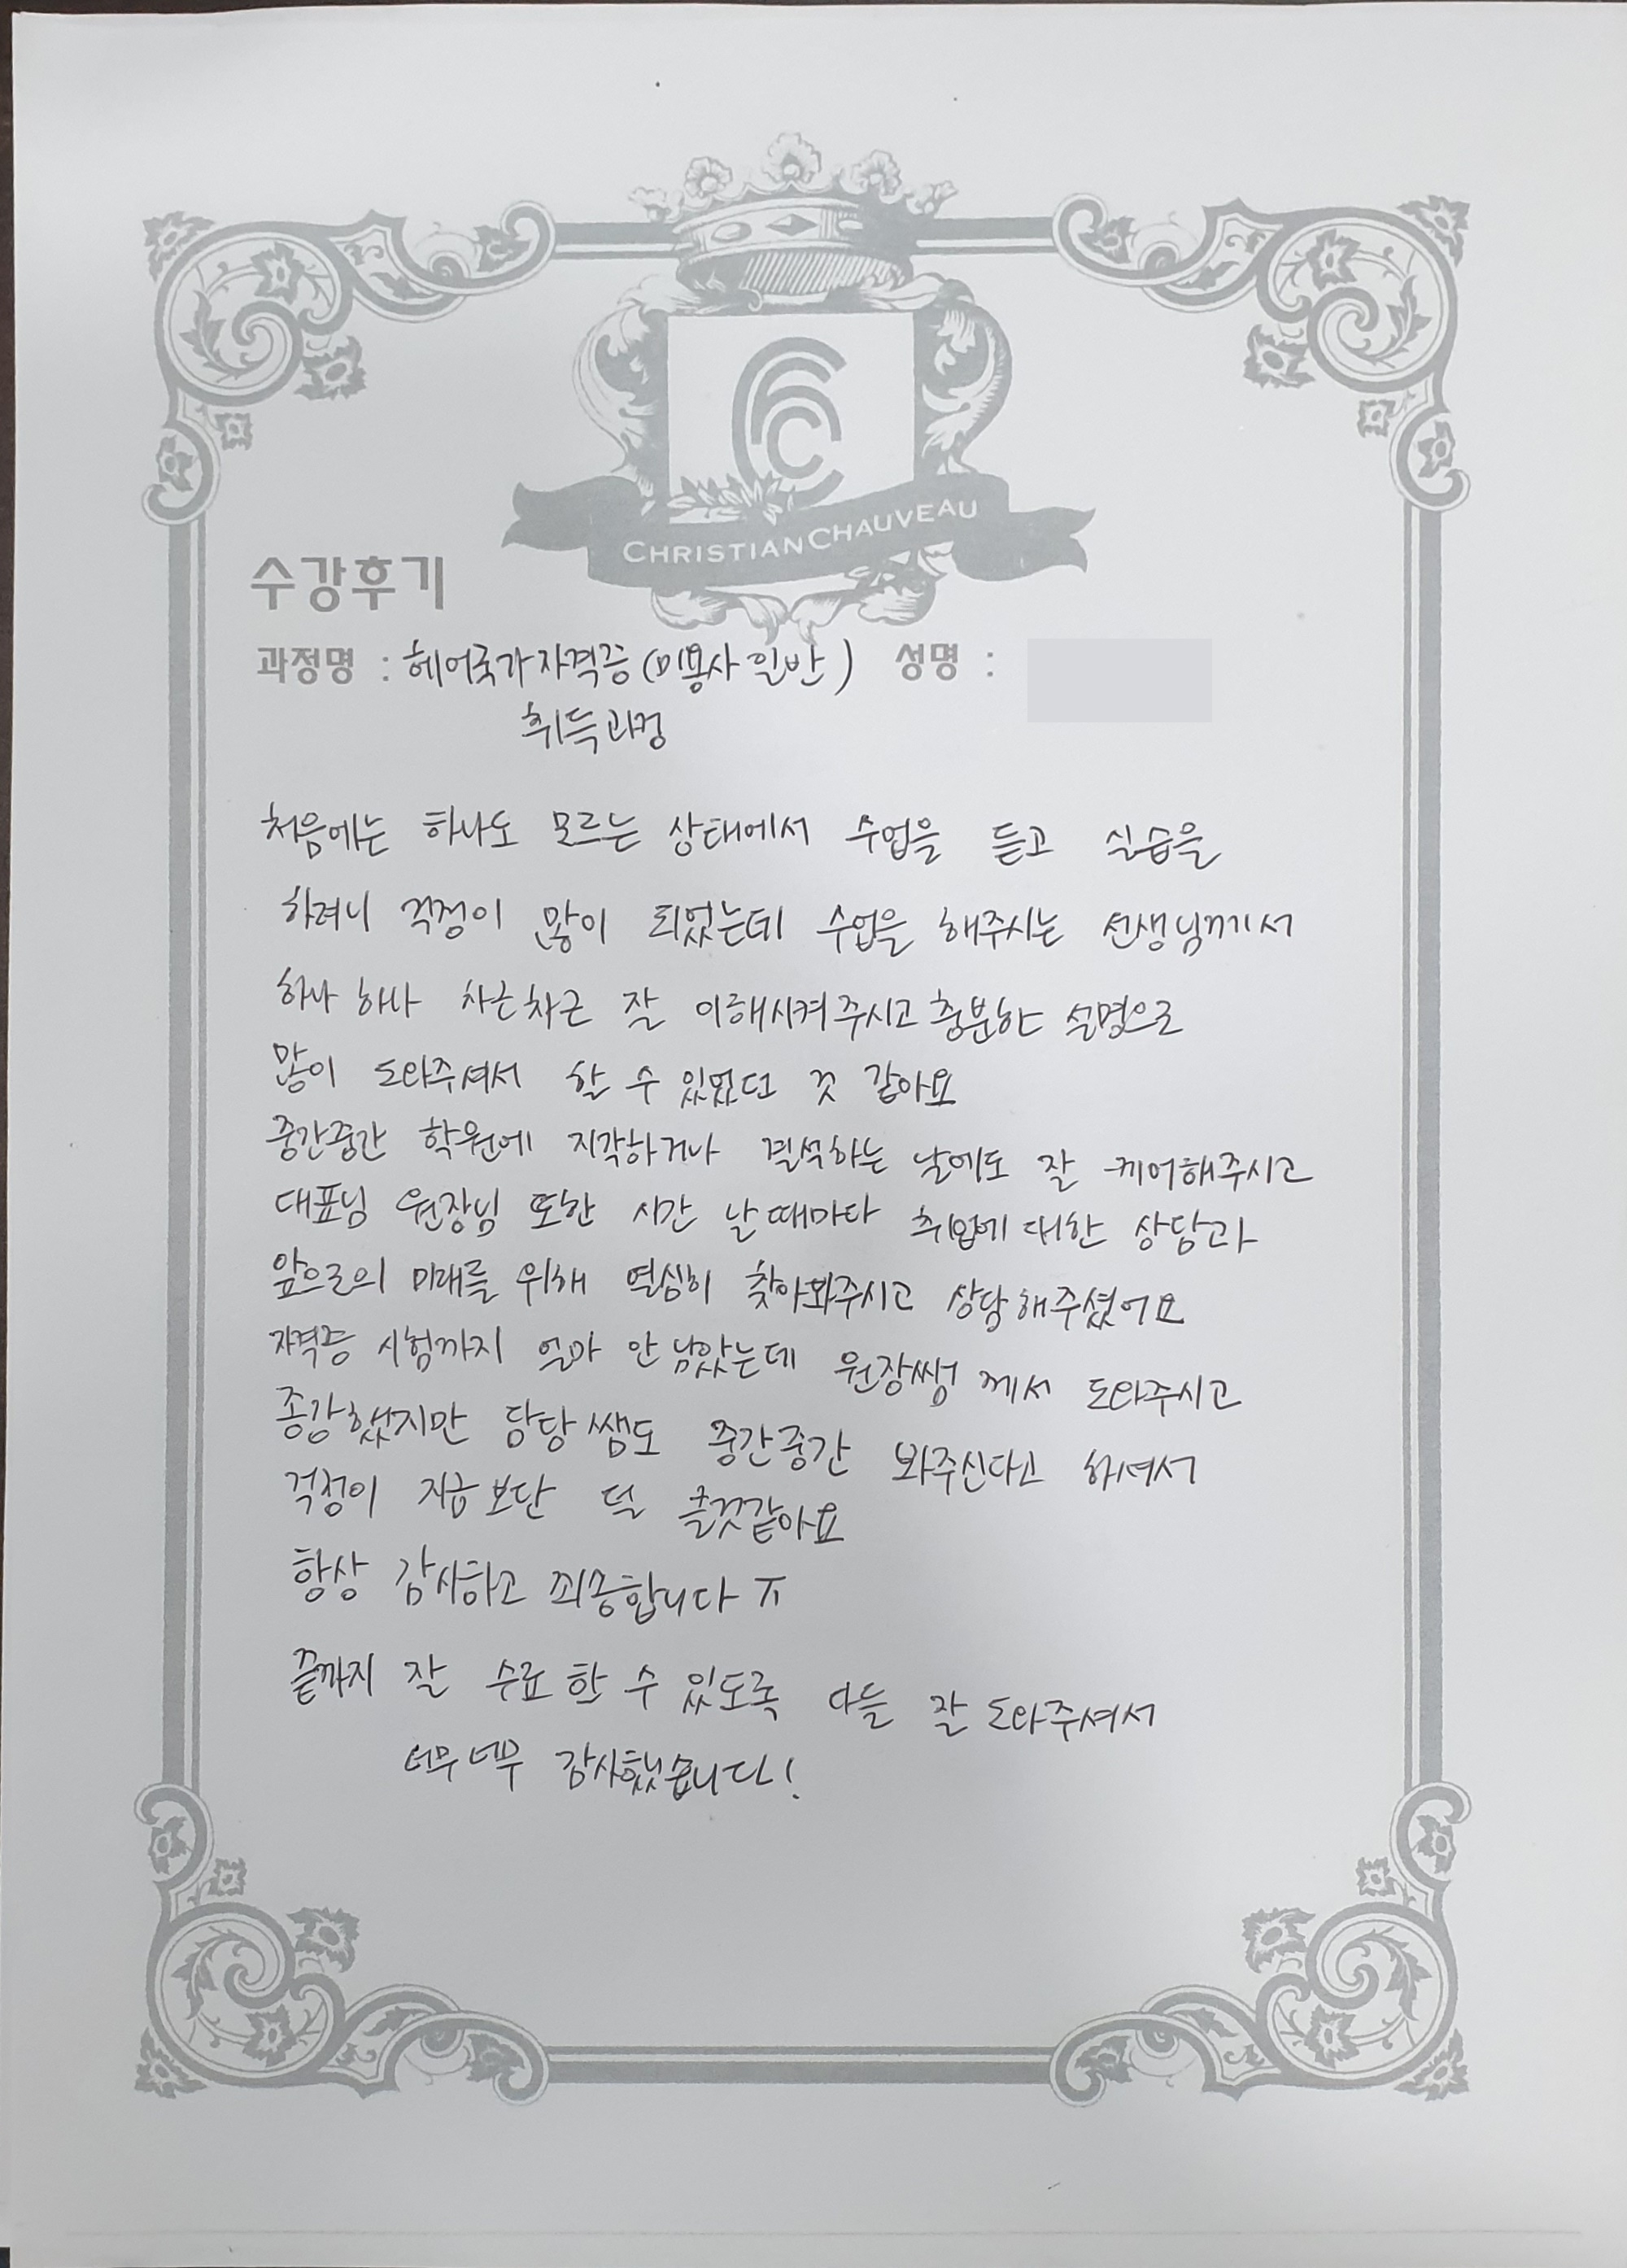 CHRISTIAN CHAUVEAU
수강후기
과정명 : 헤어국가자격증(미용사 일반) 성명 :
취득과정
처음에는 하나도 모르는 상태에서 수업을 듣고 실습을
하려니 걱정이 많이 되었는데 수업을 해주시는 선생님께서
하나 하나 차근차근 잘 이해시켜주시고 충분한 설명으로
많이 도와주셔서 할 수 있었던 것 같아요
중간중간 학원에 지각하거나 결석하는 날에도 잘 케어해주시고
대표님 원장님 또한 시간 날때마다 취업에 대한 상담과
앞으로의 미래를 위해 열심히 찾아봐주시고 상담해주셨어요
자격증 시험까지 얼마 안남았는데 원장쌤 께서 도와주시고
종강했지만 담당쌤도 중간중간 봐주신다고 하셔서
걱정이 지금보단 덜 클것같아요
항상 감사하고 죄송합니다 ㅠ
끝까지 잘 수료 할 수 있도록 다들 잘 도와주셔서
너무너무 감사했습니다!